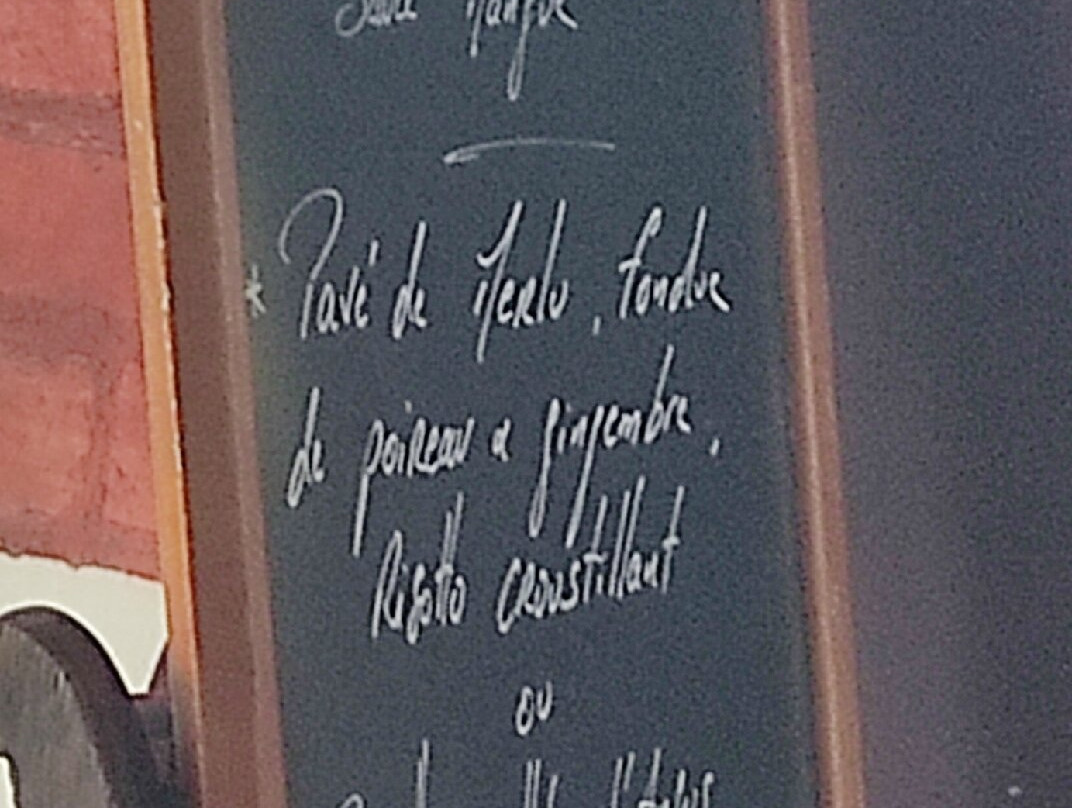 Mangue
* Pavé de Merlu, fondue
de poireau a gingembre,
Risotto croustillant
ou